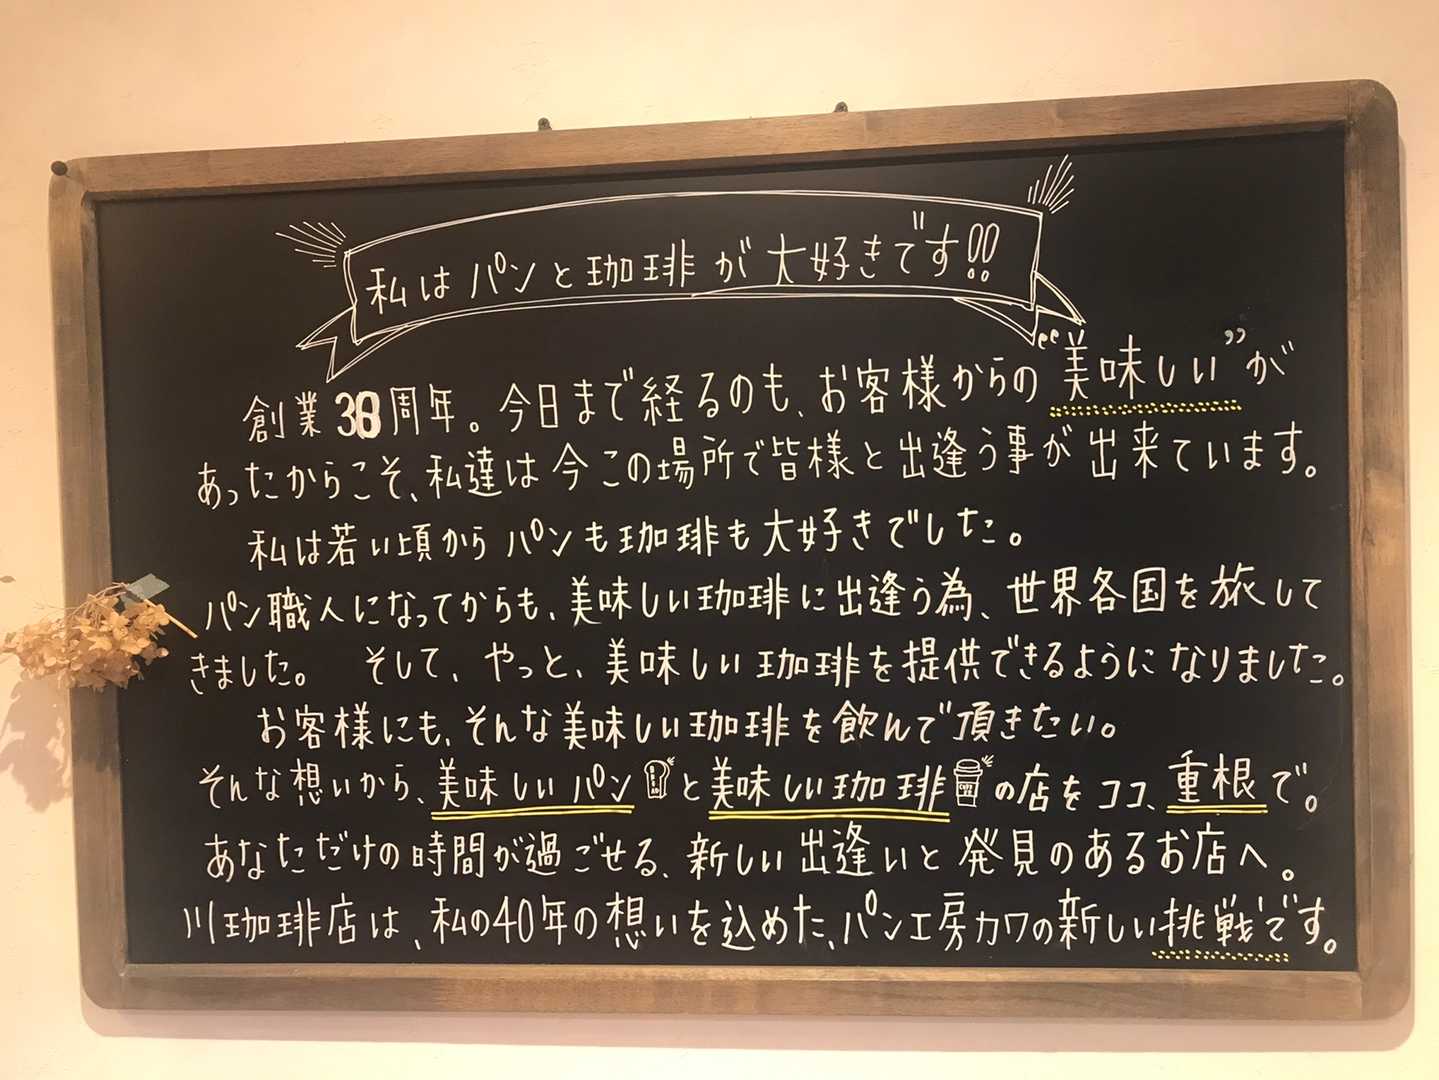 私はパンと珈琲が大好きです!!
創業38周年。今日まで経るのも、お客様からの“美味しい”が
あったからこそ、私達は今この場所で皆様と出逢う事が出来ています。
私は若い頃からパンも珈琲も大好きでした。
パン職人になってからも、美味しい珈琲に出逢う為、世界各国を旅して
きました。 そして、やっと、美味しい珈琲を提供できるようになりました。
お客様にも、そんな美味しい珈琲を飲んで頂きたい。
そんな想いから、美味しいパンと美味しい珈琲の店をココ、重根で。
あなただけの時間が過ごせる、新しい出逢いと発見のあるお店へ。
川珈琲店は、私の40年の想いを込めた、パン工房カワの新しい挑戦です。